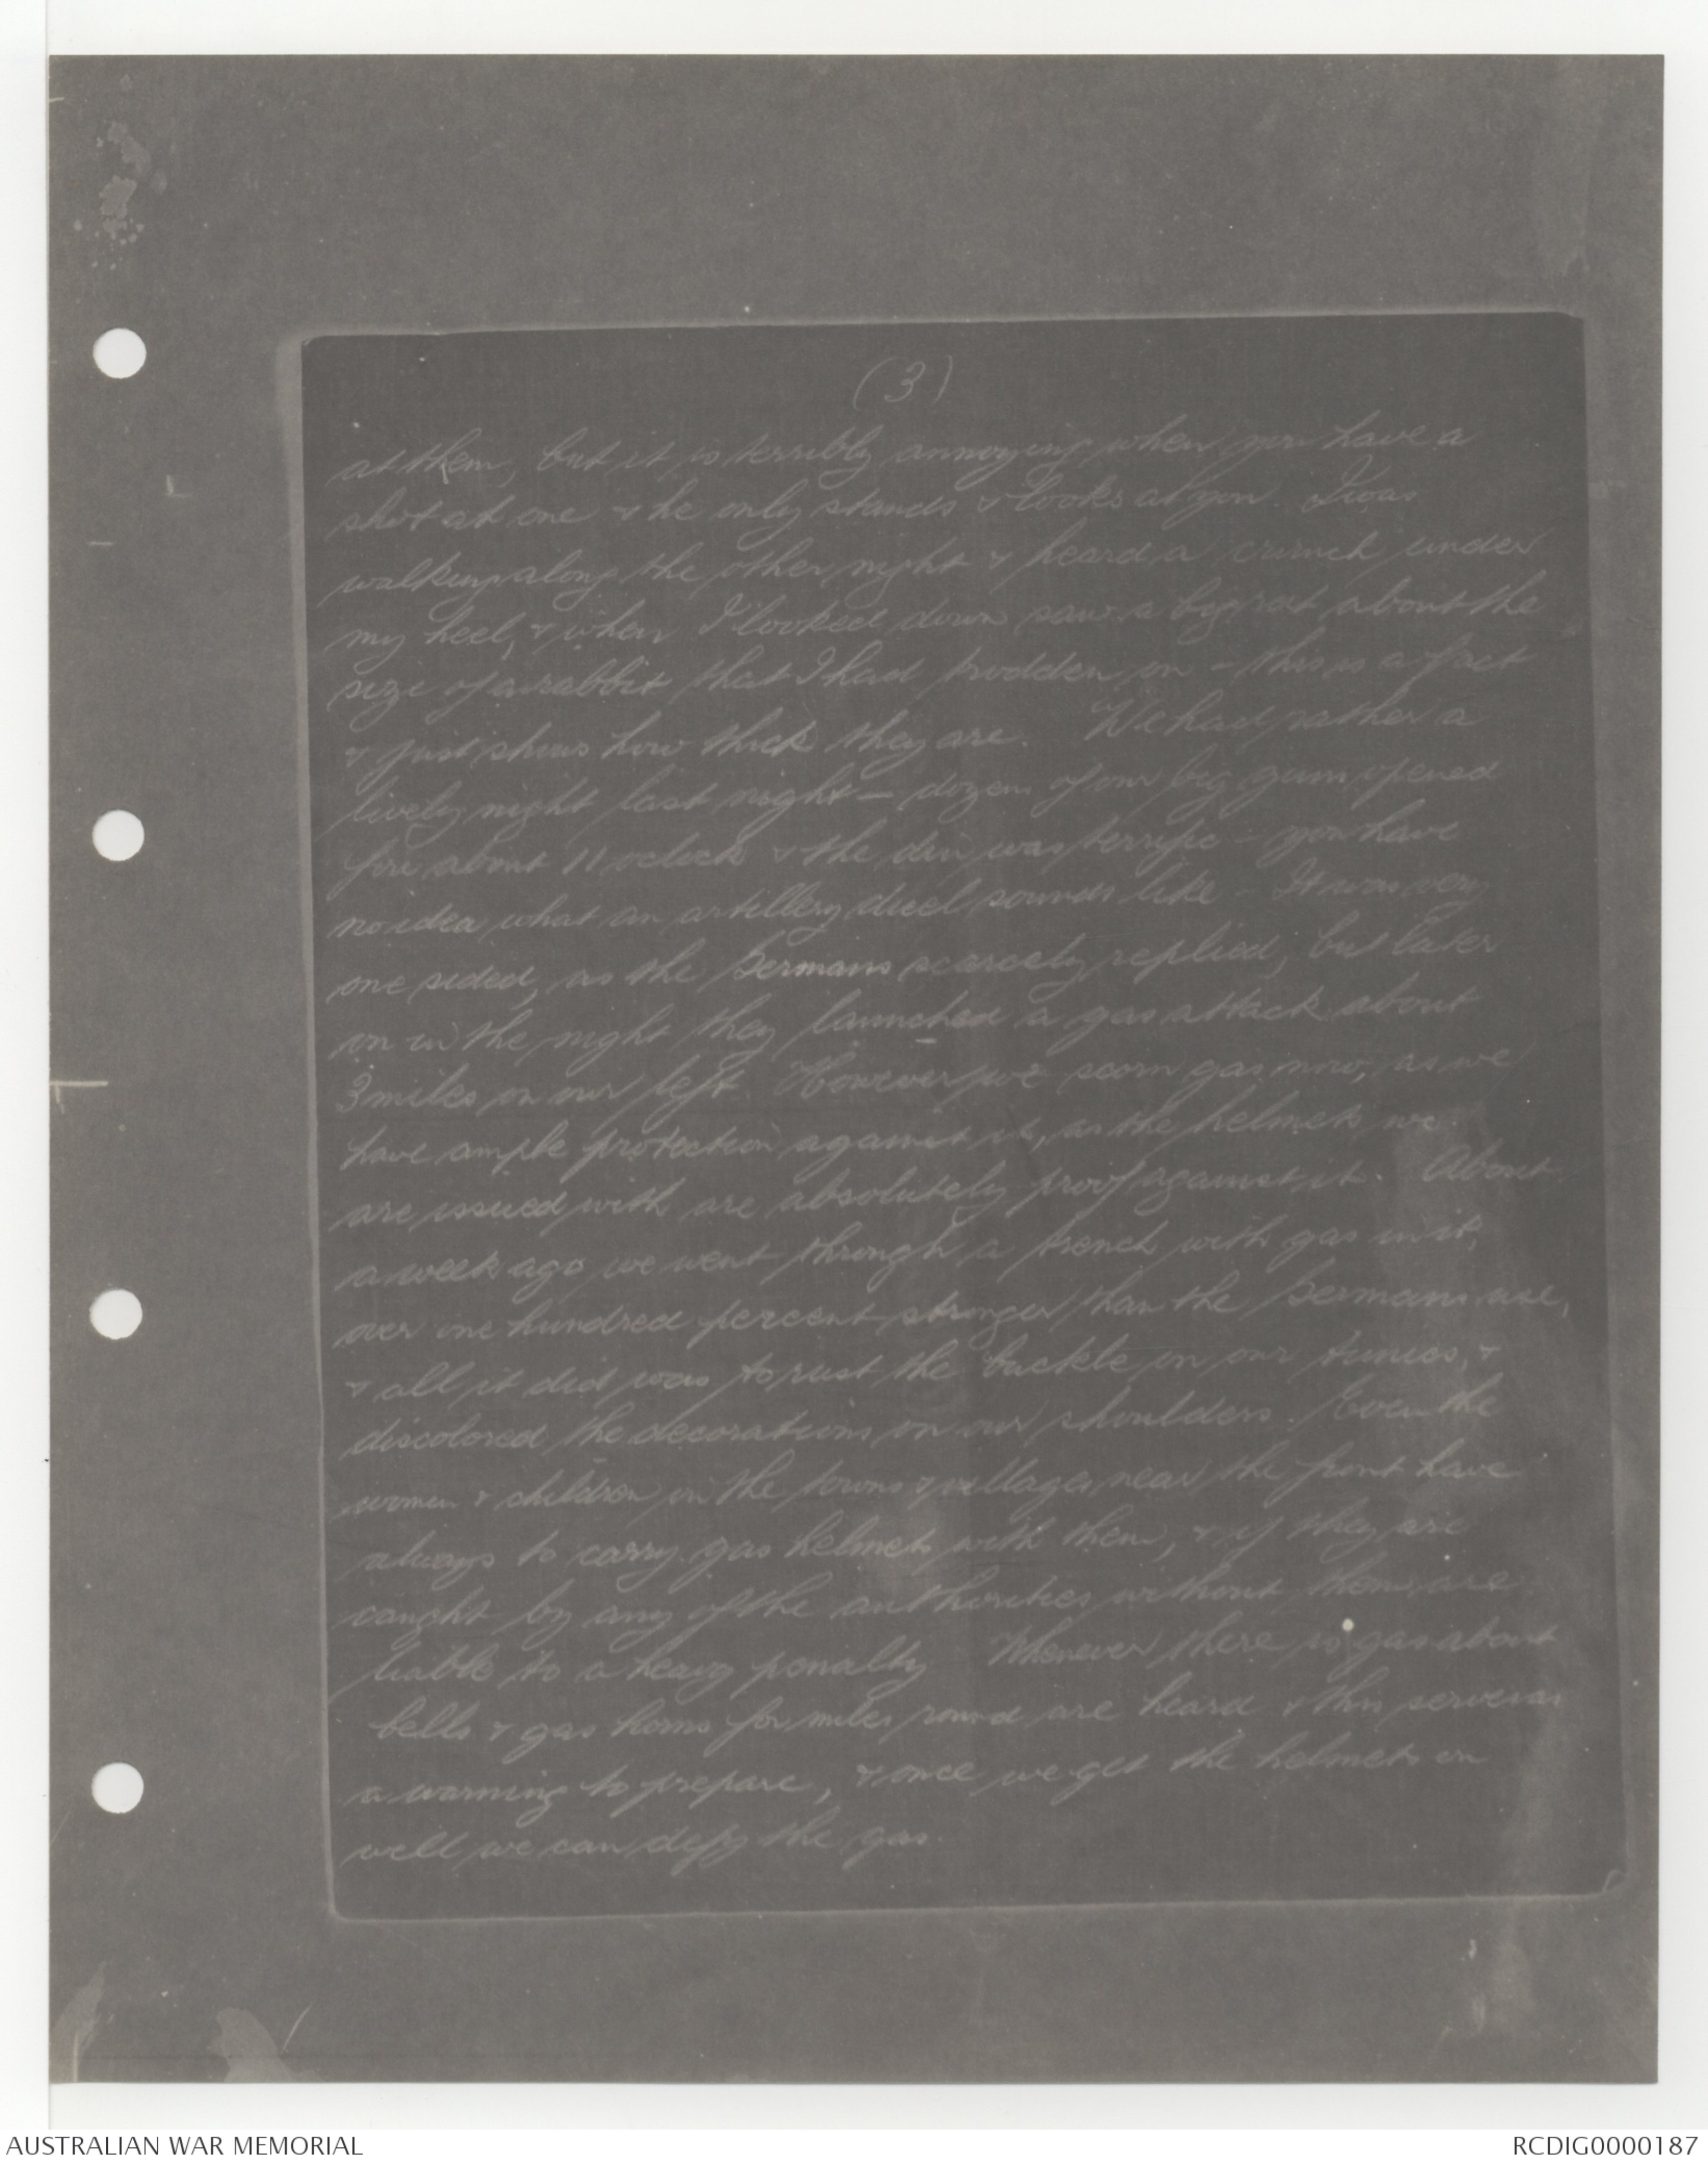 (3)
at them, but it is terribly annoying when you have a
shot at one & he only stands & looks at you. I was
walking along the other night & heard a crunch under
my heel, & when I looked down saw a big rat about the
size of a rabbit that I had trodden on - this is a fact
& just shows how thick they are. We had rather a
lively night last night - dozens of our big guns opened
fire about 11 oclock & the din was terrific - you have
no idea what an artillery duel sounds like - It was very
one sided, as the Germans scarcely replied, but later
on in the night they launched a gas attack about
3 miles on our left. However we scorn gas now, as we
have ample protection against it, as the helmets we
are issued with are absolutely proof against it. About
a week ago we went through a trench with gas in it,
over one hundred percent stronger than the Germans use,
& all it did was to rust the buckle on our tunics, &
discolored the decorations on our shoulders. Even the
women & children in the towns & villages near the front have
always to carry gas helmets with them, & if they are
caught by any of the authorities without them are
liable to a heavy penalty Whenever there is gas about
bells & gas horns for miles round are heard & this serves as
a warning to prepare, & once we get the helmets on
well we can defy the gas.
AUSTRALIAN WAR MEMORIAL
RCDIG0000187